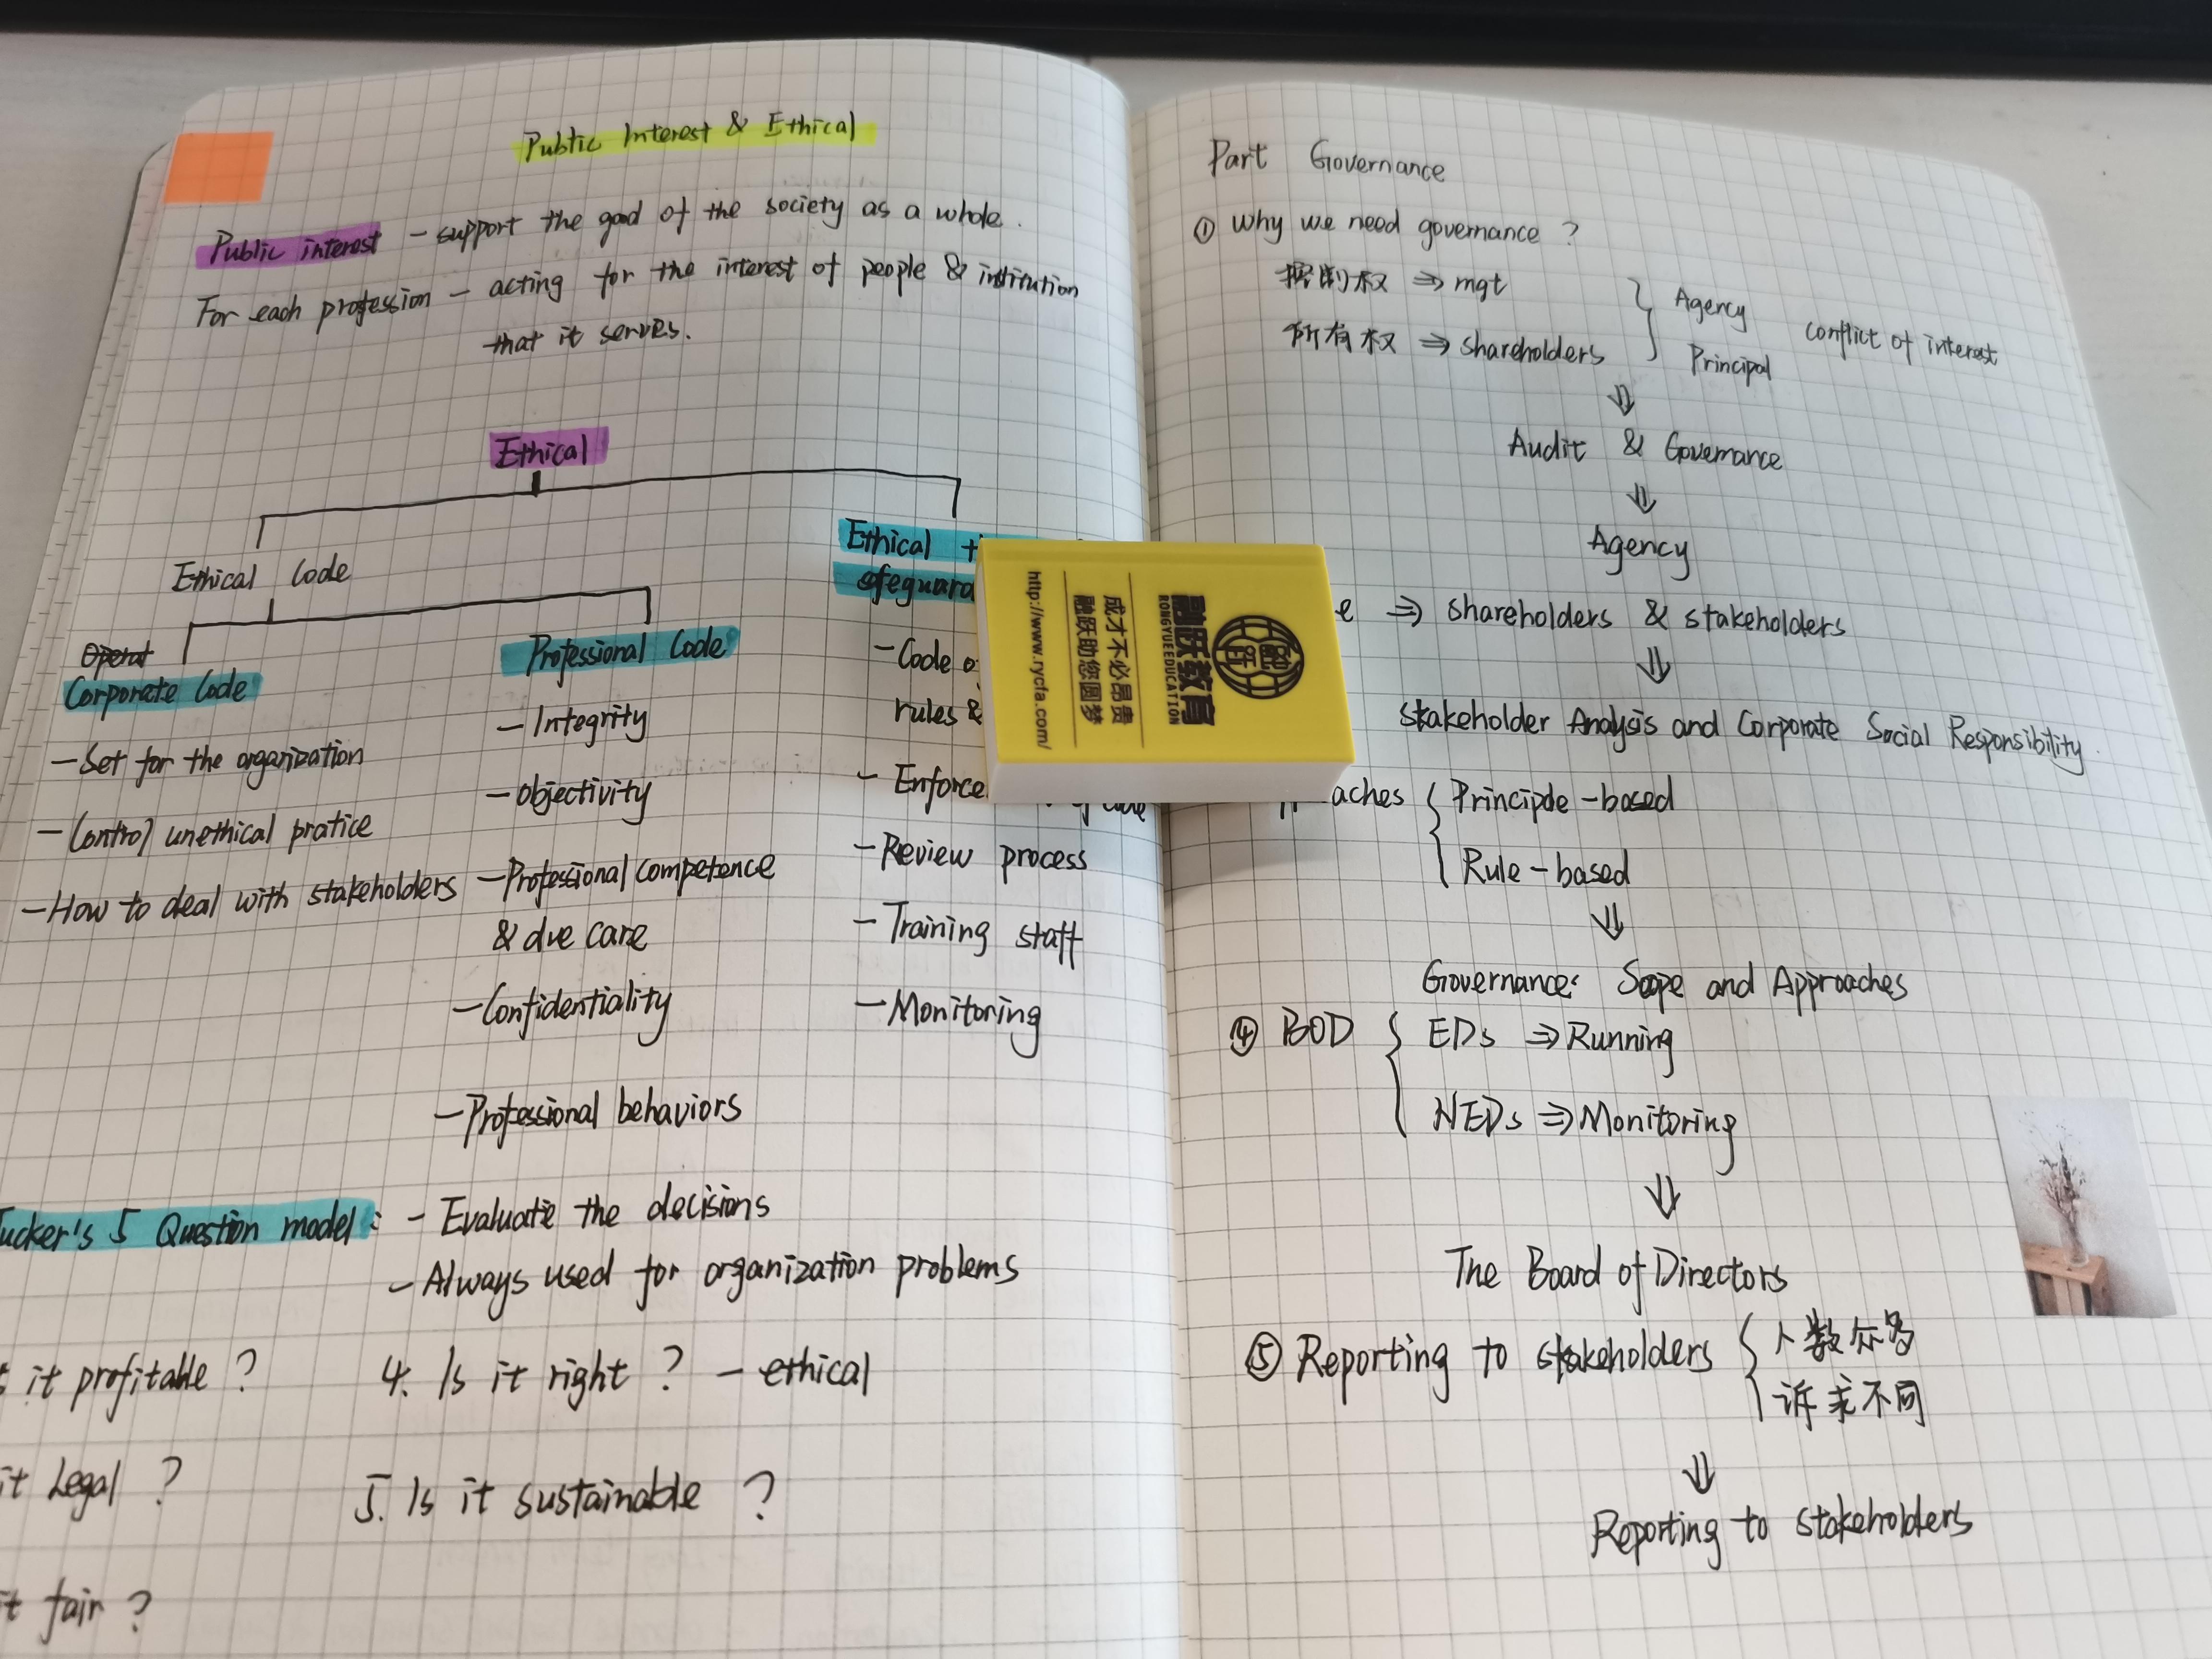 Public Interest & Ethical
Public interest - support the good of the society as a whole.
For each profession - acting for the interest of people & institution
that it serves.
Ethical
Ethical Code
Operat
Corporate Code
- Set for the organization
- Control unethical pratice
- How to deal with stakeholders
Professional Code
- Integrity
- Objectivity
- Professional competence
& due care
- Confidentiality
- Professional behaviors
Ethical
- Code
rules &
- Enforce
- Review process
- Training staff
- Monitoring
ucker's 5 Question model:
- Evaluate the decisions
- Always used for organization problems
it profitable ?
it Legal ?
it fair ?
4. Is it right ? - ethical
5. Is it sustainable ?
融跃教育
RONGYUEEDUCATION
成才不必昂贵
融跃助您圆梦
http://www.rycfa.com/
Part Governance
① Why we need governance ?
控制权 ⇒ mgt
所有权 ⇒ shareholders
Agency
Principal
conflict of interest
⇓
Audit & Governance
⇓
Agency
e ⇒ shareholders & stakeholders
⇓
Stakeholder Analysis and Corporate Social Responsibility.
aches { Principle-based
Rule-based
⇓
Governance: Scope and Approaches
④ BOD { EDs ⇒ Running
NEDs ⇒ Monitoring
⇓
The Board of Directors
⑤ Reporting to stakeholders { 人数众多
诉求不同
⇓
Reporting to stakeholders